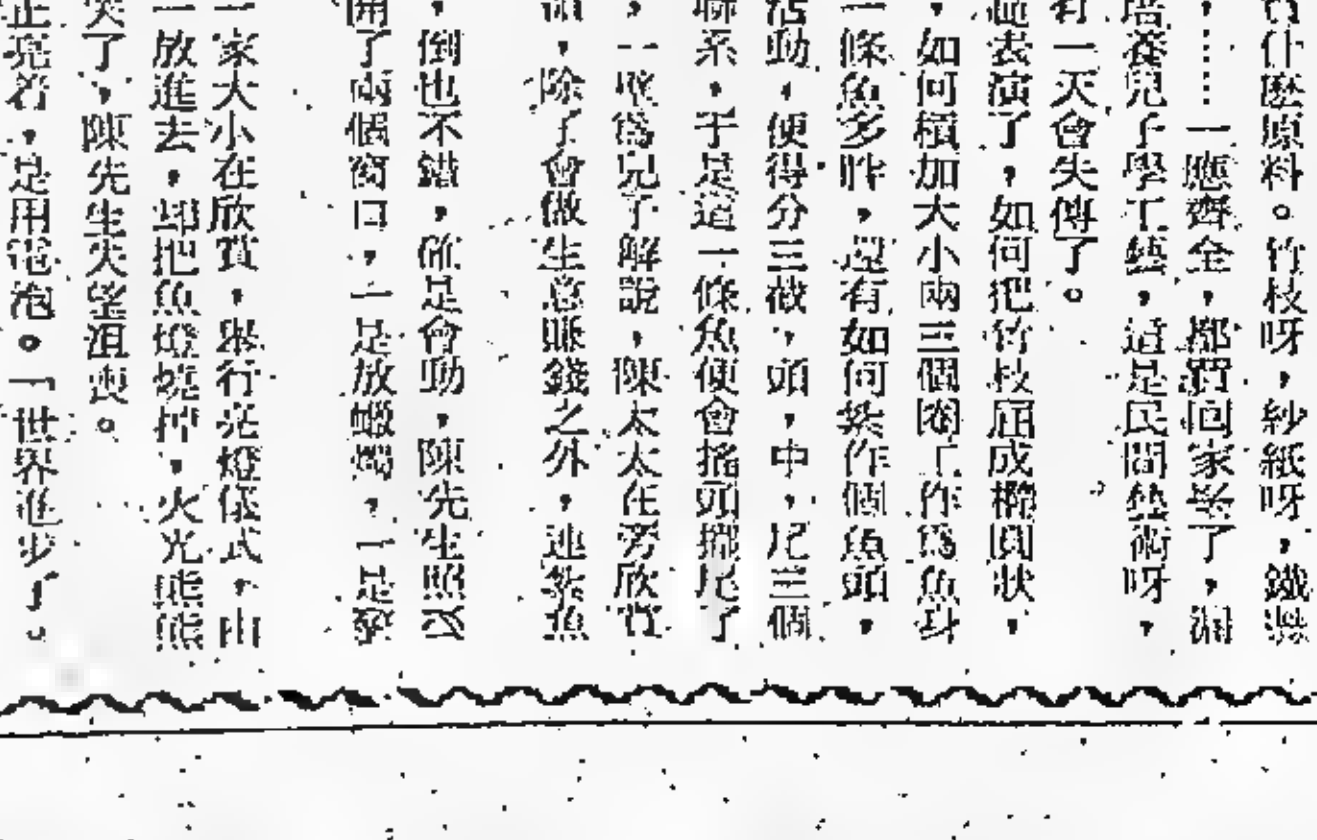 什麽原料。竹枝呀，紗紙呀，鐵絲
，……一應齊全，都買回家來了，洞
培養兒子學工藝，這是民間藝術呀，
有一天會失傳了。
從表演了，如何把竹枝屈成橢圓狀，
，如何積加大小兩三個圈工作爲魚身
一條魚多胖，還有如何紮作個魚頭，
活動，便得分三截，頭，中，尾三個
聯系，于是這一條魚便會搖頭擺尾了
，一壁爲兒子解說，陳太太在旁欣賞
，除了會做生意賺錢之外，連紮魚
，倒也不錯，確是會動，陳先生照以
開了兩個窗口，一是放蠟燭，一是發
一家大小在欣賞，舉行亮燈儀式，由
一放進去，却把魚燈燒掉，火光熊熊
失了，陳先生失望沮喪。
正亮着，是用電泡。「世界進步了。